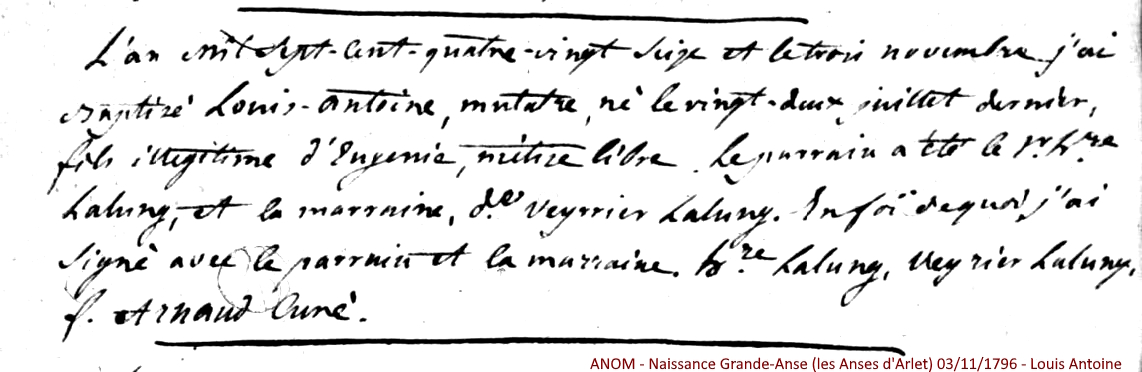 L'an mil Sept-Cent-quatre-vingt Seize et le trois novembre j'ai
Baptisé Louis-Antoine, mulatre, né le vingt-deux juillet dernier,
fils illegitime d'Eugenie, métise libre. Le parrain a été le Sr. h.re
Lalung, et la marraine, d.e Veyrrier Lalung. En foi de quoi j'ai
Signé avec le parrain et la marraine. h.re Lalung, Veyrier Lalung,
f. Arnaud Curé.
ANOM - Naissance Grande-Anse (les Anses d'Arlet) 03/11/1796 - Louis Antoine